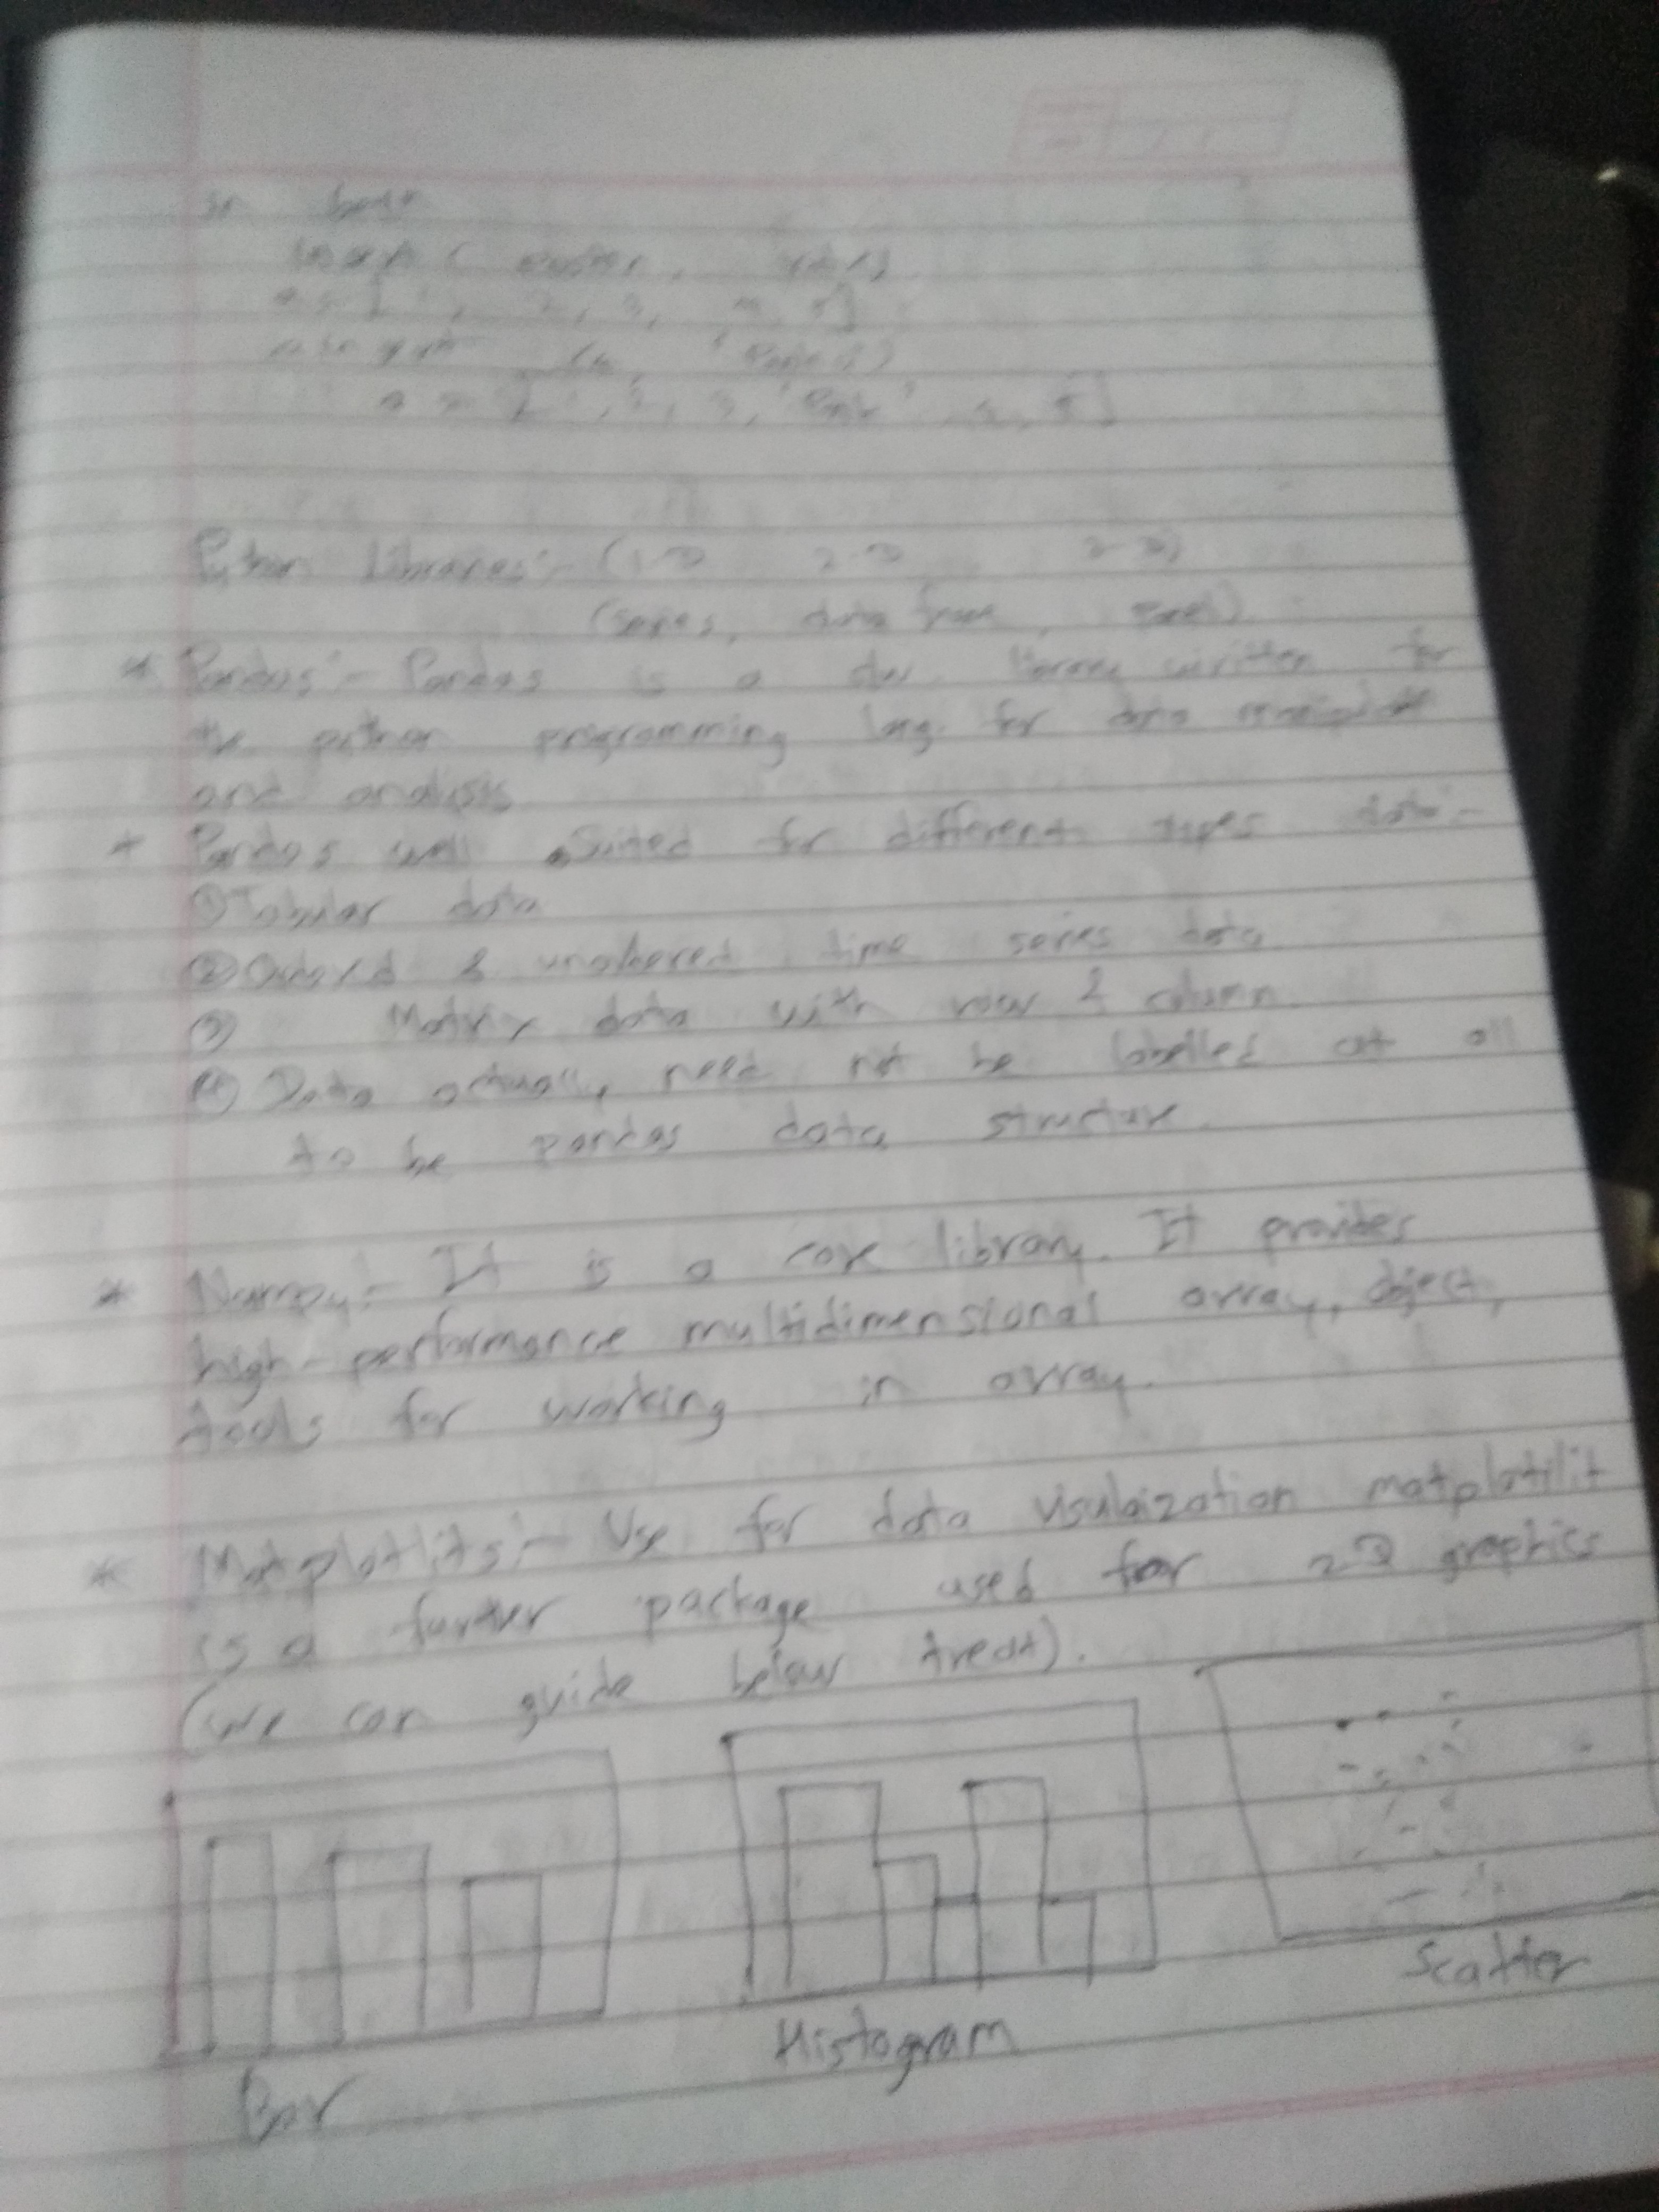 a = [1, 2, 3, 4, 5]
Python Libraries:- (1-D 2-D 3-D)
(series, data frame, panel)
* Pandas:- Pandas is a library written for
the python programming lang. for data
and analysis
* Pandas well suited for different types data:-
① Tabular data
② & unordered time series data
③ Matrix data with row & column
④ Data actually need not be labelled at all
to be pandas data structure.
* Numpy:- It is a core library. It provides
high-performance multidimensional array, object,
tools for working in array.
* Matplotlits:- Use for data visulaization matplotilit
is a further package used for 2-D graphics
(we can guide below treat).
Bar
Histogram
Scatter